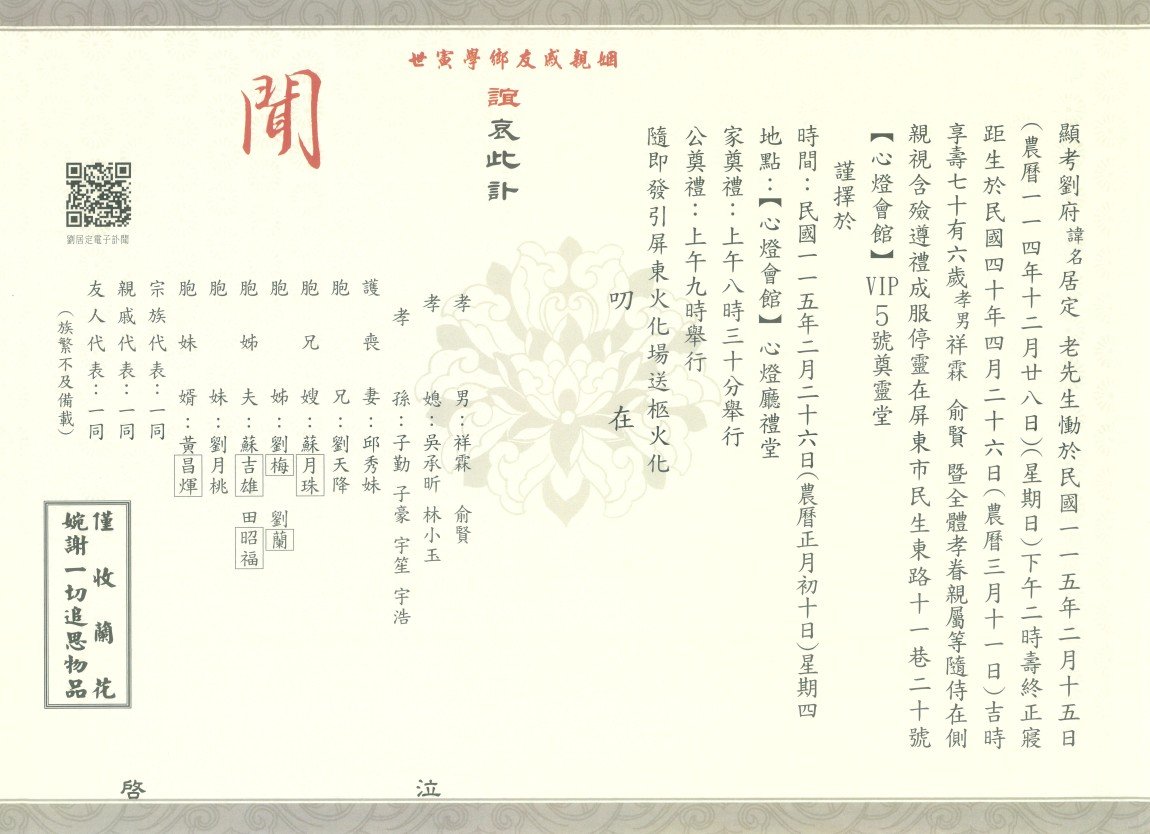 顯考劉府諱名居定　老先生慟於民國一一五年二月十五日
(農曆一一四年十二月廿八日)(星期日)下午二時壽終正寢
距生於民國四十年四月二十六日(農曆三月十一日)吉時
享壽七十有六歲孝男祥霖　俞賢　暨全體孝眷親屬等隨侍在側
親視含殮遵禮成服停靈在屏東市民生東路十一巷二十號
【心燈會館】VIP5號奠靈堂
謹擇於
時間：民國一一五年二月二十六日(農曆正月初十日)星期四
地點：【心燈會館】心燈廳禮堂
家奠禮：上午八時三十分舉行
公奠禮：上午九時舉行
隨即發引屏東火化場送柩火化
叨在
姻親戚友鄉學寅世
誼哀此訃
聞
孝　男：祥霖　俞賢
孝　媳：吳承昕　林小玉
孝　孫：子勤　子豪　宇笙　宇浩
護喪妻：邱秀妹
胞　兄：劉天降
胞兄嫂：蘇月珠
胞　姊：劉梅　劉蘭
胞姊夫：蘇吉雄　田昭福
胞　妹：劉月桃
胞妹婿：黃昌煇
宗族代表：一同
親戚代表：一同
友人代表：一同
(族繁不及備載)
泣
啓
劉居定電子訃聞
僅收蘭花
婉謝一切追思物品